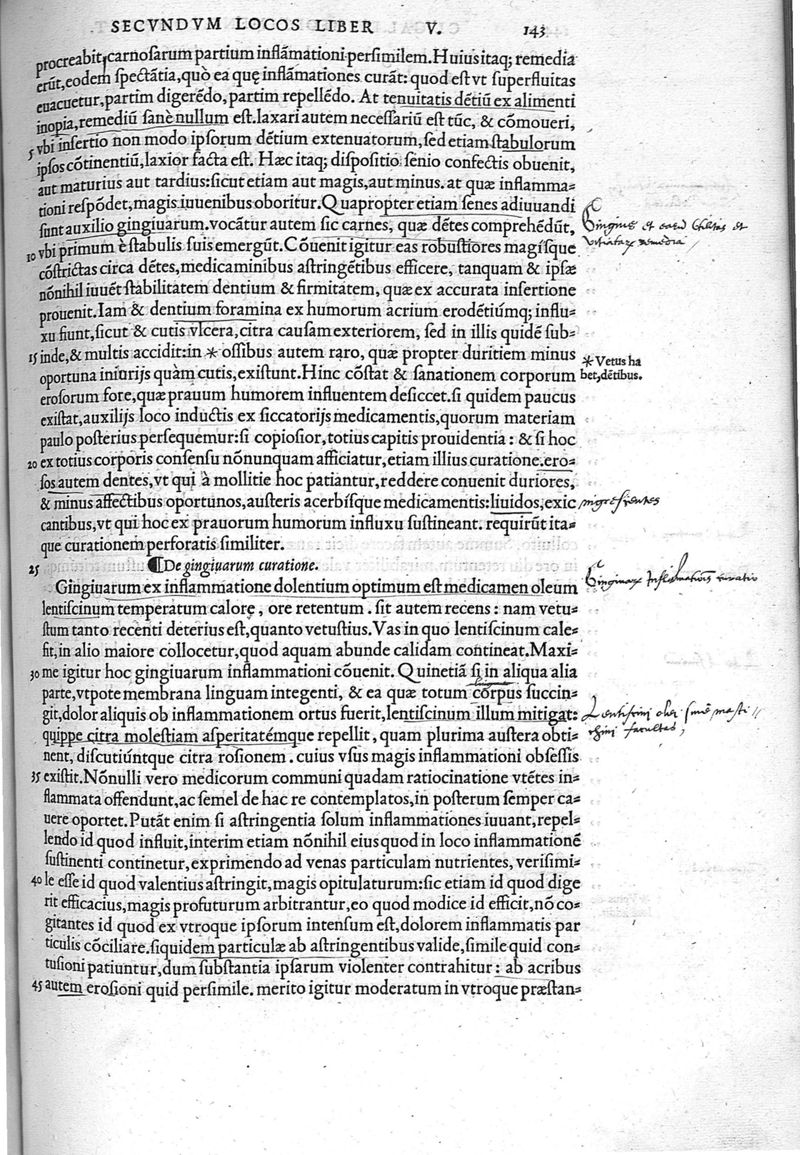 SECVNDVM LOCOS LIBER V. 143
procreabit, carnosarum partium inflãmationi persimilem. Huius itaq; remedia
erũt, eodem spectãtia, quò ea quę inflãmationes curãt: quod est vt superfluitas
euacuetur, partim digerẽdo, partim repellẽdo. At tenuitatis dẽtiũ ex alimenti
inopia, remediũ sanè nullum est. laxari autem necessariũ est tũc, & cõmoueri,
5 vbi insertio non modo ipsorum dẽtium extenuatorum, sed etiam stabulorum
ipsos cõtinentiũ, laxior facta est. Hæc itaq; dispositio senio confectis obuenit,
aut maturius aut tardius: sicut etiam aut magis, aut minus. at quæ inflamma=
tioni respõdet, magis iuuenibus oboritur. Quapropter etiam senes adiuuandi
sunt auxilio gingiuarum. vocãtur autem sic carnes, quæ dẽtes comprehẽdũt,
Gingiuę et earũ et
10 vbi primum è stabulis suis emergũt. Cõuenit igitur eas robustiores magísque
remedia
cõstrictas circa dẽtes, medicaminibus astringẽtibus efficere, tanquam & ipsæ
nõnihil iuuẽt stabilitatem dentium & firmitatem, quæ ex accurata insertione
prouenit. Iam & dentium foramina ex humorum acrium erodẽtiúmq; influ=
xu fiunt, sicut & cutis vlcera, citra causam exteriorem, sed in illis quidẽ sub=
15 inde, & multis accidit: in * ossibus autem raro, quæ propter duritiem minus
* Vetus ha
oportuna iniurijs quàm cutis, existunt. Hinc cõstat & sanationem corporum
bet, dẽtibus.
erosorum fore, quæ prauum humorem influentem desiccet. si quidem paucus
existat, auxilijs loco inductis ex siccatorijs medicamentis, quorum materiam
paulo posterius persequemur: si copiosior, totius capitis prouidentia: & si hoc
20 ex totius corporis consensu nõnunquam afficiatur, etiam illius curatione. ero=
sos autem dentes, vt qui à mollitie hoc patiantur, reddere conuenit duriores,
& minus affectibus oportunos, austeris acerbísque medicamentis: liuidos, exic
nigrescentes
cantibus, vt qui hoc ex prauorum humorum influxu sustineant. requirũt ita=
que curationem perforatis similiter.
25 ¶ De gingiuarum curatione.
Gingiuarum ex inflammatione dolentium optimum est medicamen oleum
Gingiuarũ Inflamationis curatio
lentiscinum temperatum calorę, ore retentum. sit autem recens: nam vetu=
stum tanto recenti deterius est, quanto vetustius. Vas in quo lentiscinum cale=
fit, in alio maiore collocetur, quod aquam abunde calidam contineat. Maxi=
30 me igitur hoc gingiuarum inflammationi cõuenit. Quinetiã si in aliqua alia
parte, vtpote membrana linguam integenti, & ea quæ totum corpus succin=
git, dolor aliquis ob inflammationem ortus fuerit, lentiscinum illum mitigat:
Lentiscini olei siue masti
quippe citra molestiam asperitatémque repellit, quam plurima austera obti=
chini facultas,
nent, discutiúntque citra rosionem. cuius vsus magis inflammationi obsessis
35 existit. Nõnulli vero medicorum communi quadam ratiocinatione vtẽtes in=
flammata offendunt, ac semel de hac re contemplatos, in posterum semper ca=
uere oportet. Putãt enim si astringentia solum inflammationes iuuant, repel=
lendo id quod influit, interim etiam nõnihil eius quod in loco inflammationẽ
sustinenti continetur, exprimendo ad venas particulam nutrientes, verisimi=
40 le esse id quod valentius astringit, magis opitulaturum: sic etiam id quod dige
rit efficacius, magis profuturum arbitrantur, eo quod modice id efficit, nõ co=
gitantes id quod ex vtroque ipsorum intensum est, dolorem inflammatis par
ticulis cõciliare. siquidem particulæ ab astringentibus valide, simile quid con=
tusioni patiuntur, dum substantia ipsarum violenter contrahitur: ab acribus
45 autem erosioni quid persimile. merito igitur moderatum in vtroque præstan=